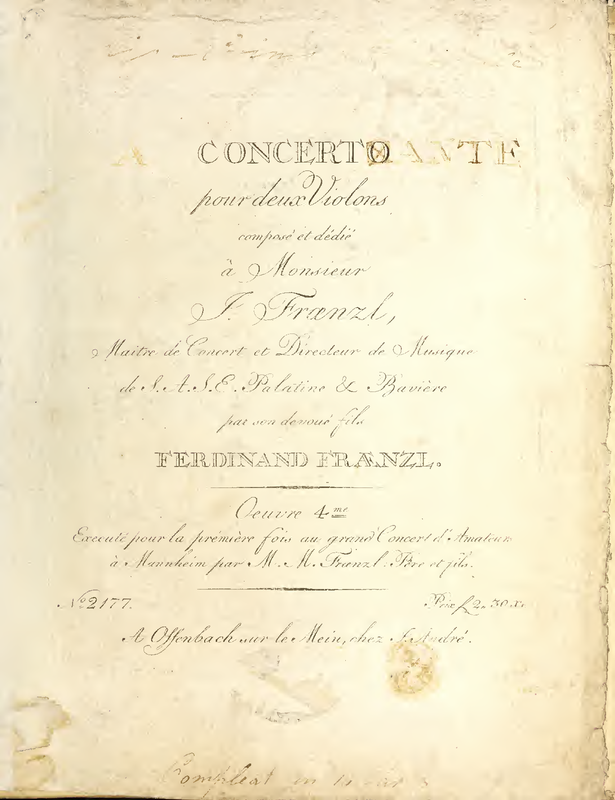 CONCERTO
pour deux Violons
composé et dédié
à Monsieur
J. Frænzl,
Maitre de Concert et Directeur de Musique
de S. A. S. E. Palatine & Bavière
par son devoué fils
FERDINAND FRÆNZL.
Oeuvre 4me
Executé pour la première fois au grand Concert d'Amateurs
à Mannheim par M. M. Frænzl Pere et fils.
No 2177.
Prix f 2. 30 Xr.
A Offenbach sur le Mein, chez J. André.
Compleat in